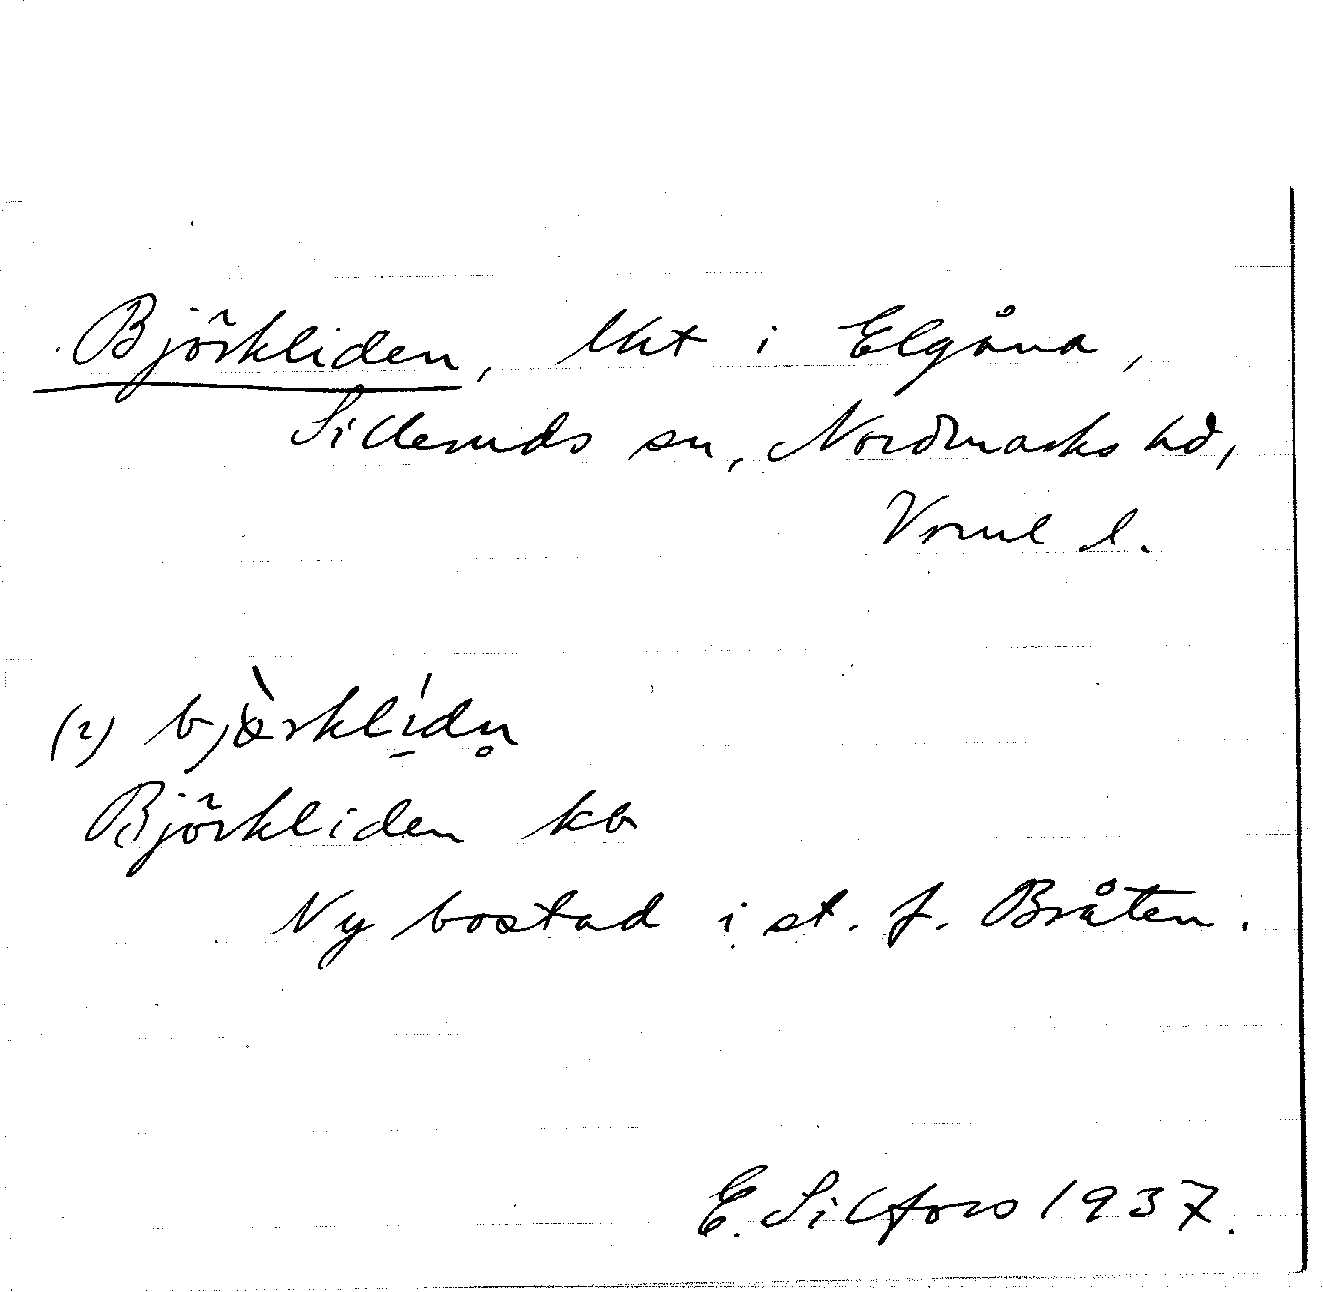 Björkliden, lht i Elgåna,
Silleruds sn, Nordmarks hd,
Vrml l.
(2) bjö̀rklí̱dn̥
Björkliden kb
Ny bostad i st. f. Bråten.
E. Silfors 1937.